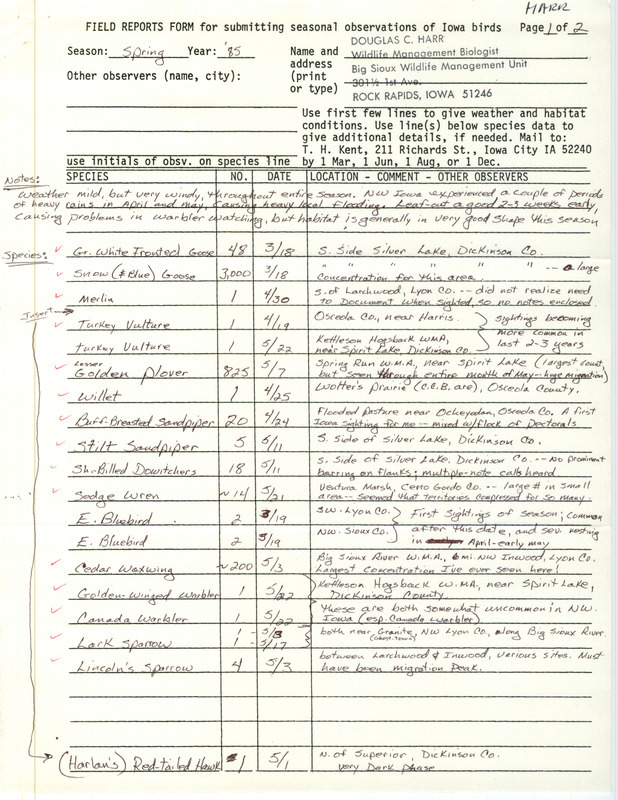 HARR
FIELD REPORTS FORM for submitting seasonal observations of Iowa birds Page 1 of 2
Season: Spring Year: '85 Name and address (print or type)
DOUGLAS C. HARR
Wildlife Management Biologist
Big Sioux Wildlife Management Unit
301½ 1st Ave.
ROCK RAPIDS, IOWA 51246
Other observers (name, city):
Use first few lines to give weather and habitat
conditions. Use line(s) below species data to
give additional details, if needed. Mail to:
T. H. Kent, 211 Richards St., Iowa City IA 52240
by 1 Mar, 1 Jun, 1 Aug, or 1 Dec.
use initials of obsv. on species line
SPECIES NO. DATE LOCATION - COMMENT - OTHER OBSERVERS
Notes:
Weather mild, but very windy, throughout entire season. NW Iowa experienced a couple of periods
of heavy rains in April and May, causing heavy local flooding. Leaf-out a good 2-3 weeks early,
causing problems in warbler watching, but habitat is generally in very good shape this season
Species:
Gr. White Fronted Goose 48 3/18 S. Side Silver Lake, Dickinson Co.
Snow (& Blue) Goose 3,000 3/18 " " " " -- a large
concentration for this area.
Merlin 1 4/30 S. of Larchwood, Lyon Co. -- did not realize need
to Document when sighted, so no notes enclosed.
Insert
Turkey Vulture 1 4/19 Osceola Co., near Harris.
Turkey Vulture 1 5/22 Kettleson Hogsback W.M.A,
near Spirit Lake, Dickinson Co.
sightings becoming
more common in
last 2-3 years
Lesser
Golden Plover 825 5/7 Spring Run W.M.A., near Spirit Lake (largest count,
but seen through entire month of May--huge migration)
Willet 1 4/25 Wolter's Prairie (C.C.B. are), Osceola County.
Buff-Breasted Sandpiper 20 4/24 Flooded pasture near Ocheyedan, Osceola Co. A first
Iowa sighting for me -- mixed w/flock of Pectorals
Stilt Sandpiper 5 5/11 S. Side of Silver Lake, Dickinson Co.
Sh.-Billed Dowitchers 18 5/11 S. Side of Silver Lake, Dickinson Co. -- No prominent
barring on flanks; multiple-note calls heard.
Sedge Wren ~14 5/21 Ventura Marsh, Cerro Gordo Co. -- large # in small
area -- seemed that territories compressed for so many.
E. Bluebird 2 3/19 S.W. Lyon Co.
E. Bluebird 2 3/19 NW. Sioux Co.
First sightings of season; common
after this date, and sev. nesting
in April-early may
Cedar Waxwing ~200 5/3 Big Sioux River W.M.A., 6 mi. NW Inwood, Lyon Co.
Largest concentration I've ever seen here!
Golden-Winged Warbler 1 5/22 Kettleson Hogsback W.M.A, near Spirit Lake,
Dickinson County.
Canada Warbler 1 5/22 These are both somewhat uncommon in N.W.
Iowa (esp. Canada Warbler)
Lark Sparrow 1 - 5/3
1 - 5/17 both near Granite, NW Lyon Co., along Big Sioux River.
(Ghost Town)
Lincoln's Sparrow 4 5/3 between Larchwood & Inwood, various sites. Must
have been migration peak.
(Harlan's) Red-tailed Hawk 1 5/1 N. of Superior, Dickinson Co.
very Dark phase